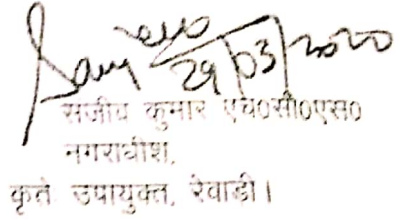 29/03/2020
सजीव कुमार एच०सी०एस०
नगराधीश,
कृते उपायुक्त, रेवाडी।